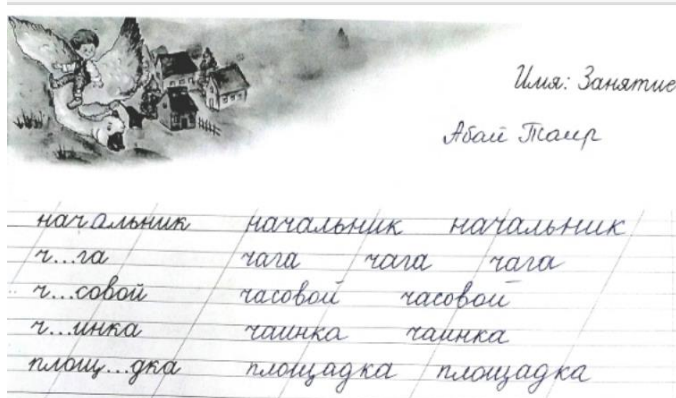 Имя: Занятие
Абай Таир
начальник начальник начальник
ч...га чага чага чага
ч...совой часовой часовой
ч...инка чаинка чаинка
площ...дка площадка площадка